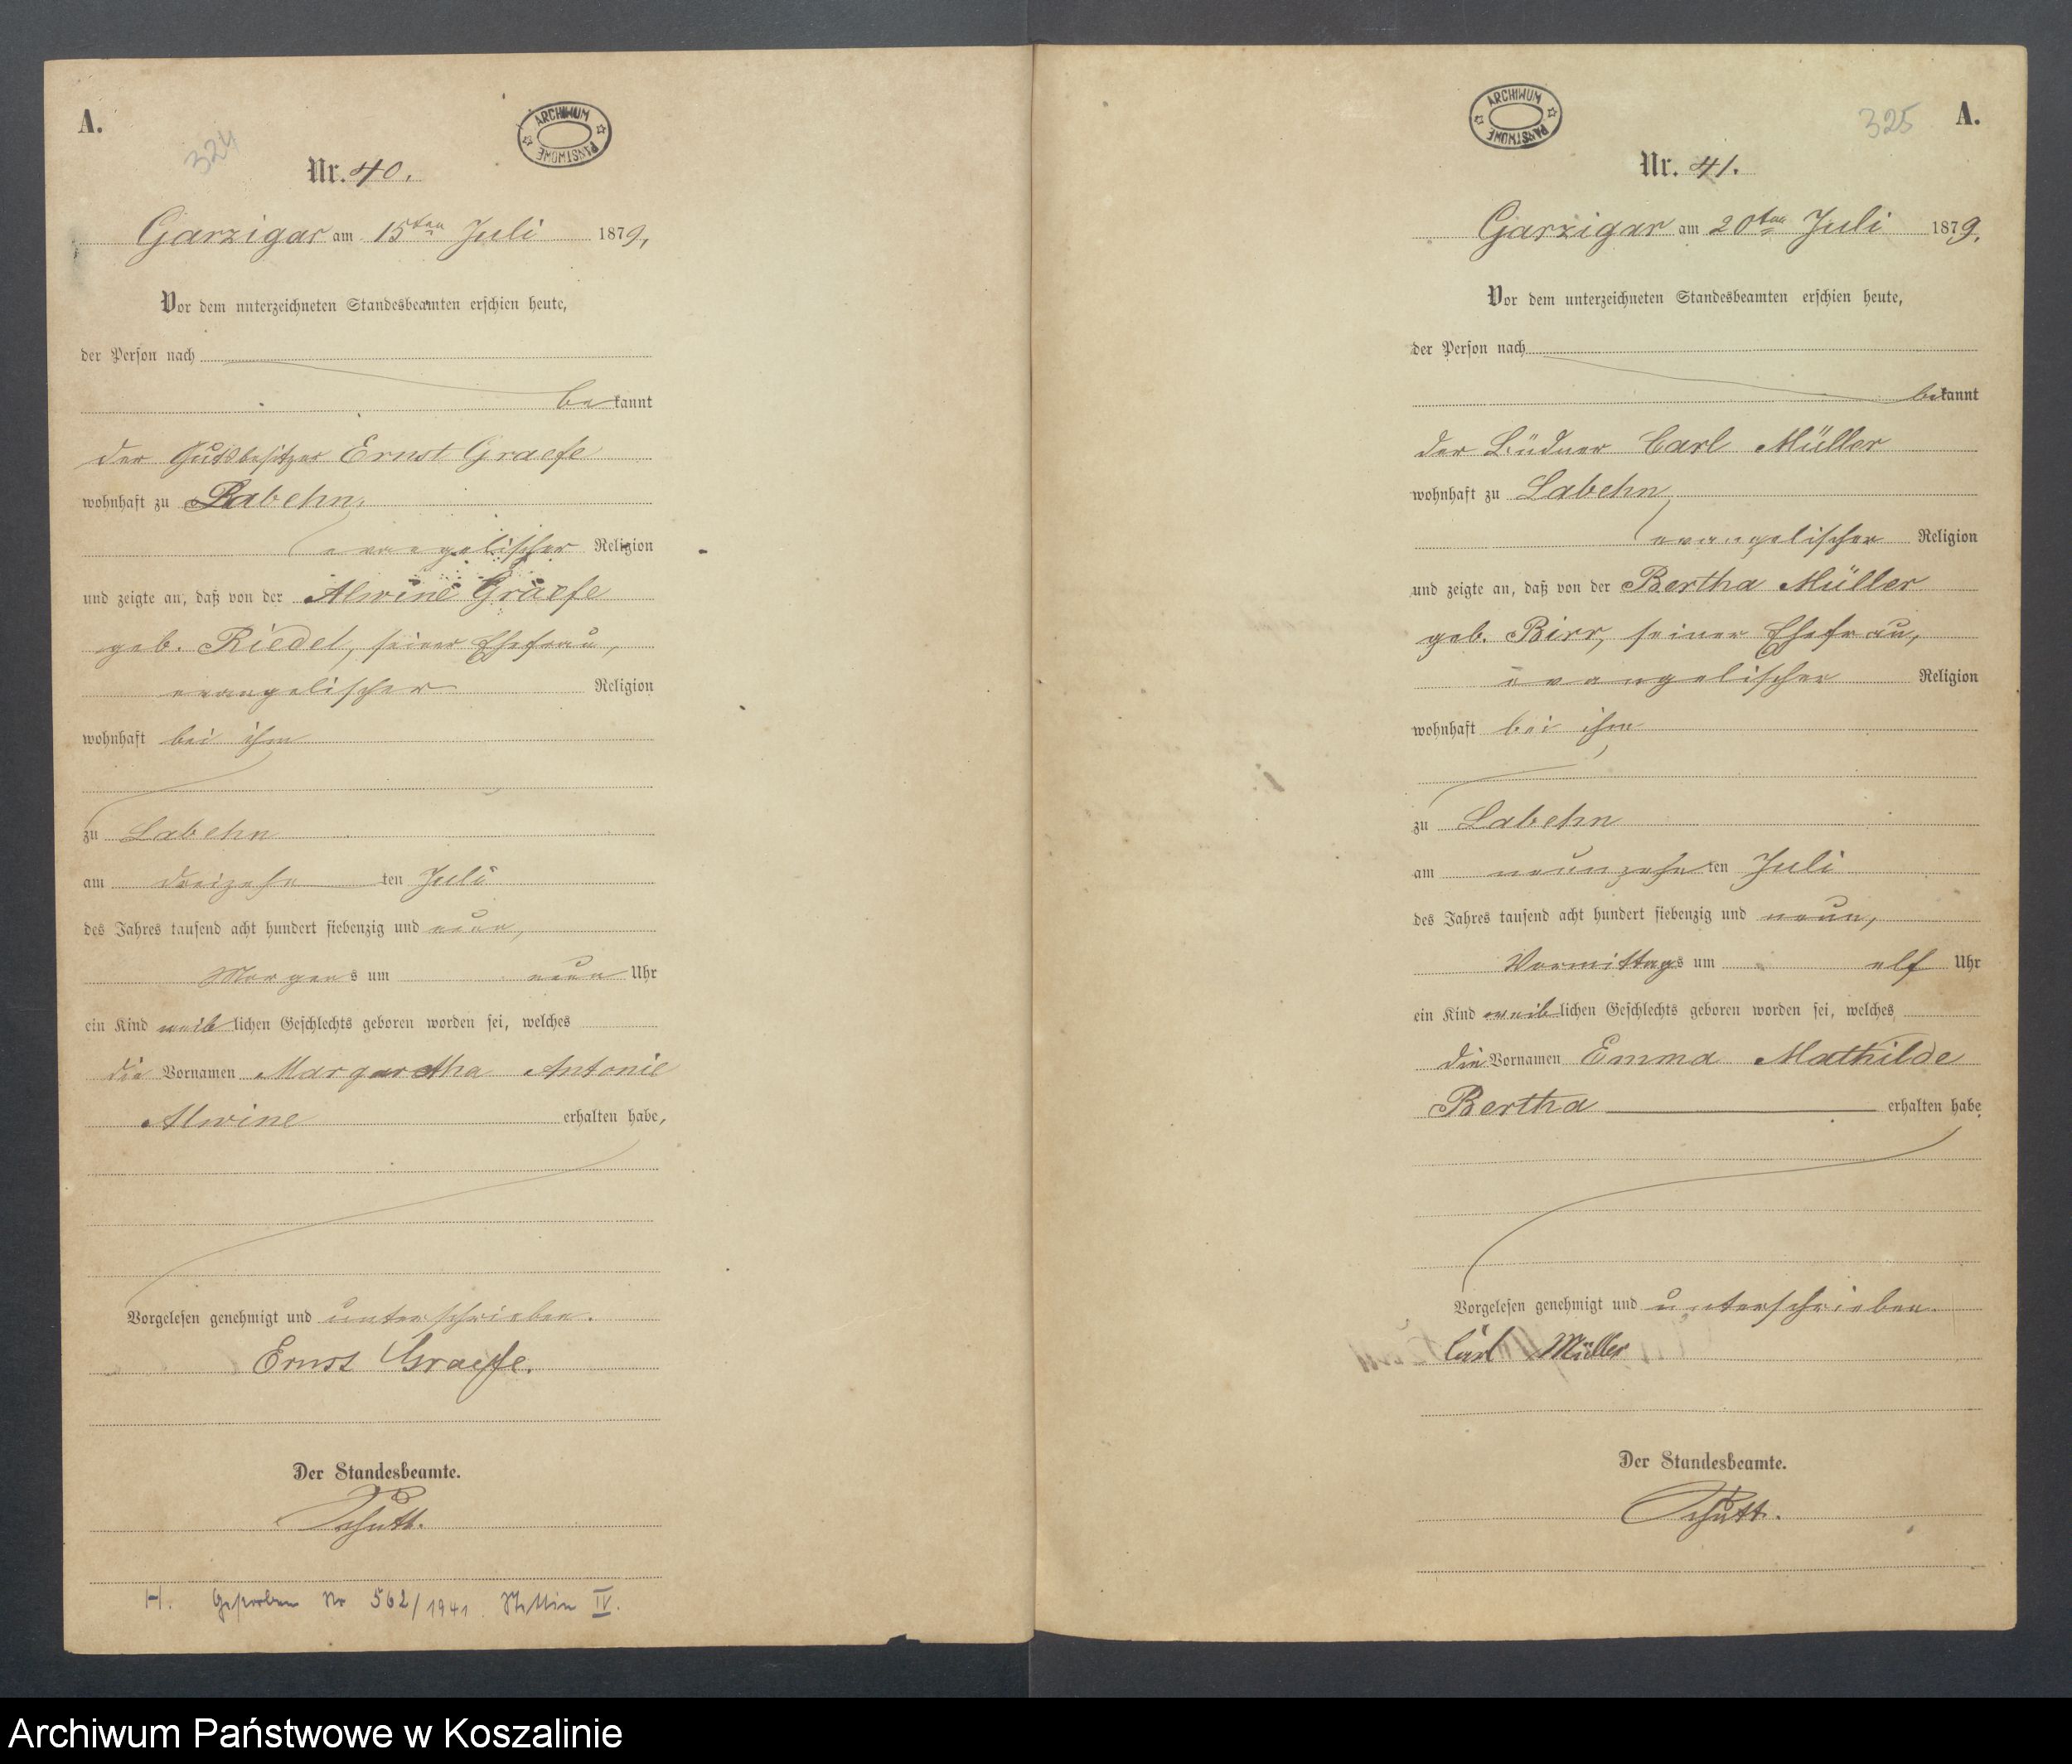 A.
324
ARCHIWUM PAŃSTWOWE
Nr. 40.
Garzigar am 15ten Juli 1879,
Vor dem unterzeichneten Standesbeamten erschien heute,
der Person nach
bekannt
der Gutsbesitzer Ernst Graefe
wohnhaft zu Labehn,
evangelischer Religion
und zeigte an, daß von der Alwine Graefe
geb. Riedel, seiner Ehefrau,
evangelischer Religion
wohnhaft bei ihm
zu Labehn
am dreizehnten Juli
des Jahres tausend acht hundert siebenzig und neun,
Morgens um neun Uhr
ein Kind weiblichen Geschlechts geboren worden sei, welches
die Vornamen Margaretha Antonie
Alwine erhalten habe,
Vorgelesen genehmigt und unterschrieben.
Ernst Graefe.
Der Standesbeamte.
H. Gestorben Nr 562/1941. Stettin IV.
ARCHIWUM PAŃSTWOWE
325 A.
Nr. 41.
Garzigar am 20ten Juli 1879,
Vor dem unterzeichneten Standesbeamten erschien heute,
der Person nach
bekannt
der Büdner Carl Müller
wohnhaft zu Labehn
evangelischer Religion
und zeigte an, daß von der Bertha Müller
geb. Birr, seiner Ehefrau,
evangelischer Religion
wohnhaft bei ihm
zu Labehn
am neunzehnten Juli
des Jahres tausend acht hundert siebenzig und neun,
Vormittags um elf Uhr
ein Kind weiblichen Geschlechts geboren worden sei, welches
die Vornamen Emma Mathilde
Bertha erhalten habe
Vorgelesen genehmigt und unterschrieben.
Carl Müller
Der Standesbeamte.
Archiwum Państwowe w Koszalinie